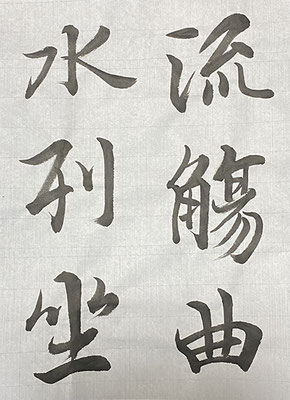 流觴曲
水列坐